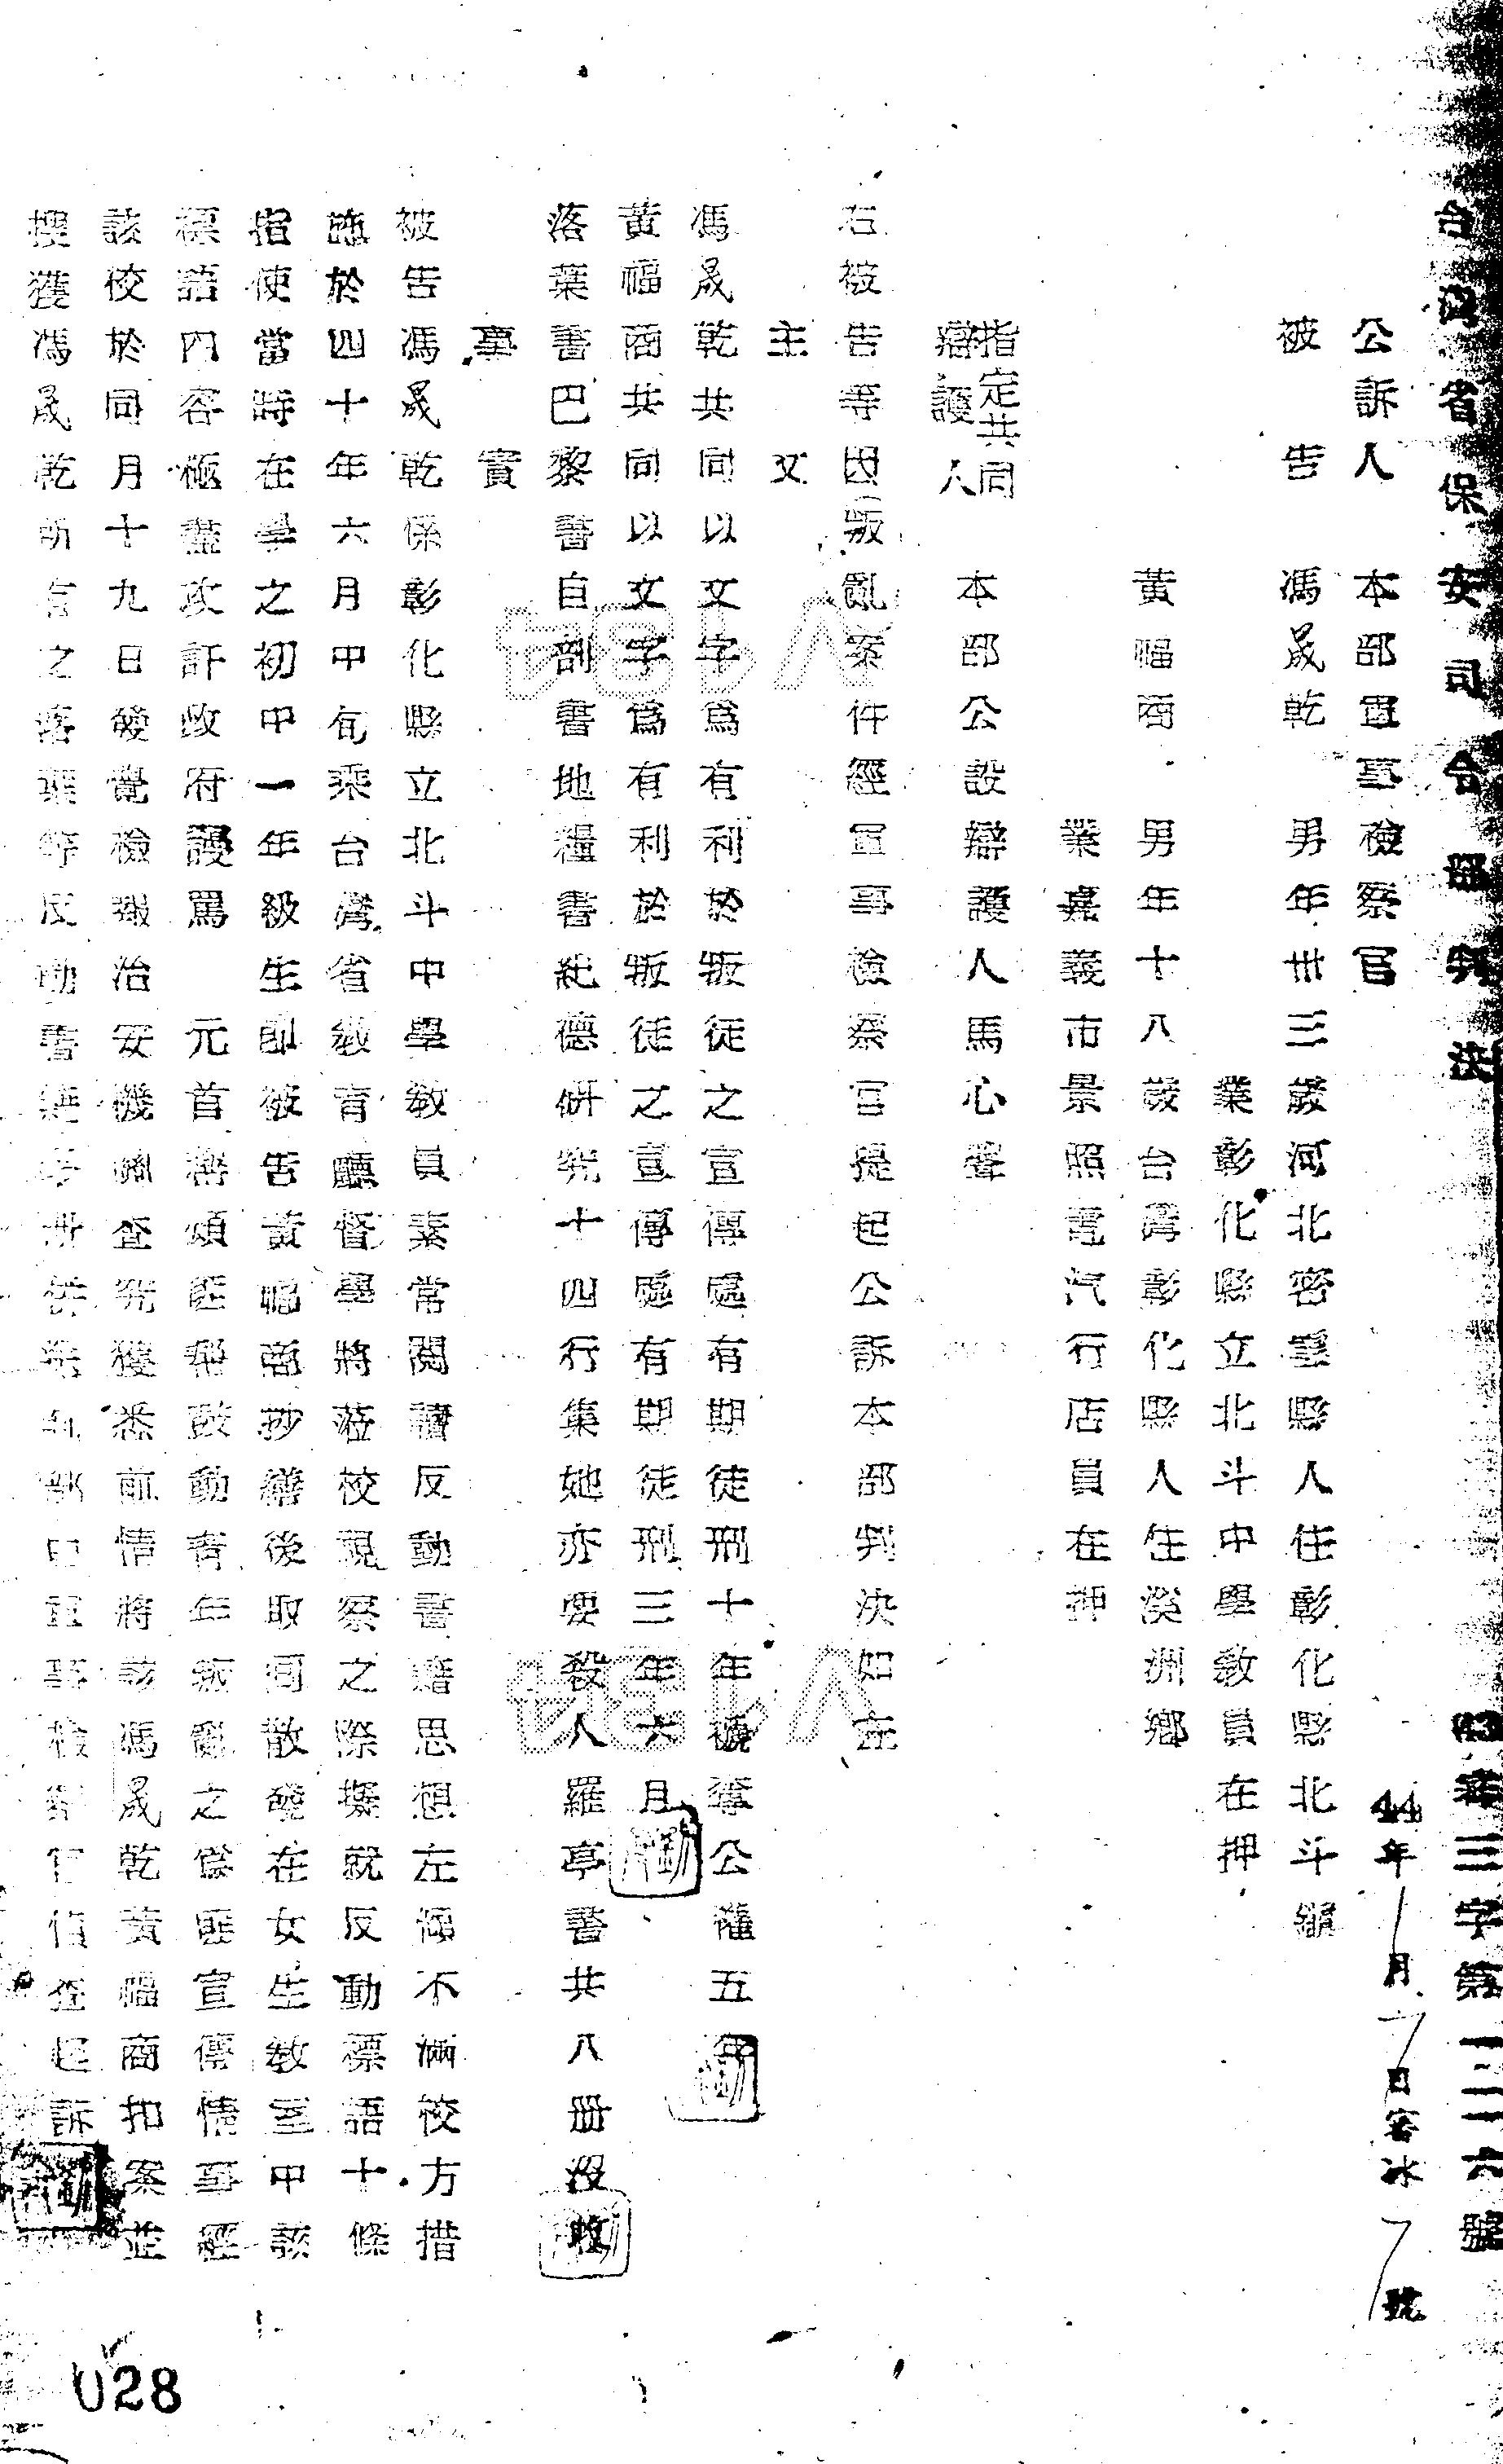 台灣省保安司令部判決
43審三字第一二一六號
44年1月7日審冰7號
公訴人 本部軍事檢察官
被告 馮晟乾 男年卅三歲河北密雲縣人住彰化縣北斗鎮
業彰化縣立北斗中學教員在押
黃福商 男年十八歲台灣彰化縣人住溪洲鄉
業嘉義市景照電汽行店員在押
指定共同
辯護人 本部公設辯護人馬心聲
右被告等因叛亂案件經軍事檢察官提起公訴本部判決如左
主文
馮晟乾共同以文字為有利於叛徒之宣傳處有期徒刑十年褫奪公權五年
黃福商共同以文字為有利於叛徒之宣傳處有期徒刑三年六月
落葉書巴黎書自剖書地糧書紀德研究十四行集她亦要殺人羅亭書共八冊沒收
事實
被告馮晟乾係彰化縣立北斗中學教員素常閱讀反動書籍思想左傾不滿校方措
施於四十年六月中旬乘台灣省教育廳督學將蒞校視察之際撰就反動標語十條
指使當時在學之初中一年級生即被告黃福商抄繕後取回散發在女生教室中該
標語內容極盡攻訐政府謾罵 元首稱頌匪幫鼓動青年叛亂之為匪宣傳情事經
該校於同月十九日發覺檢報治安機關查究獲悉前情將該馮晟乾黃福商扣案並
搜獲馮晟乾所有之落葉等反動書籍 部 軍事檢察官偵查起訴
028